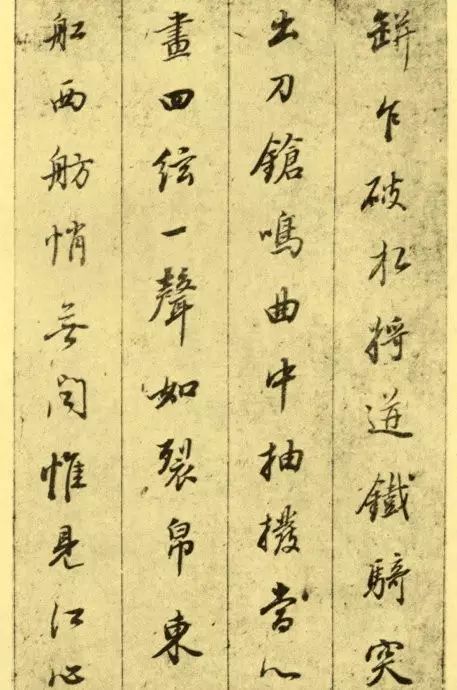 缾乍破水將迸鐵騎突
出刀鎗鳴曲中抽撥當心
畫四絃一聲如裂帛東
舡西舫悄無聞惟見江心